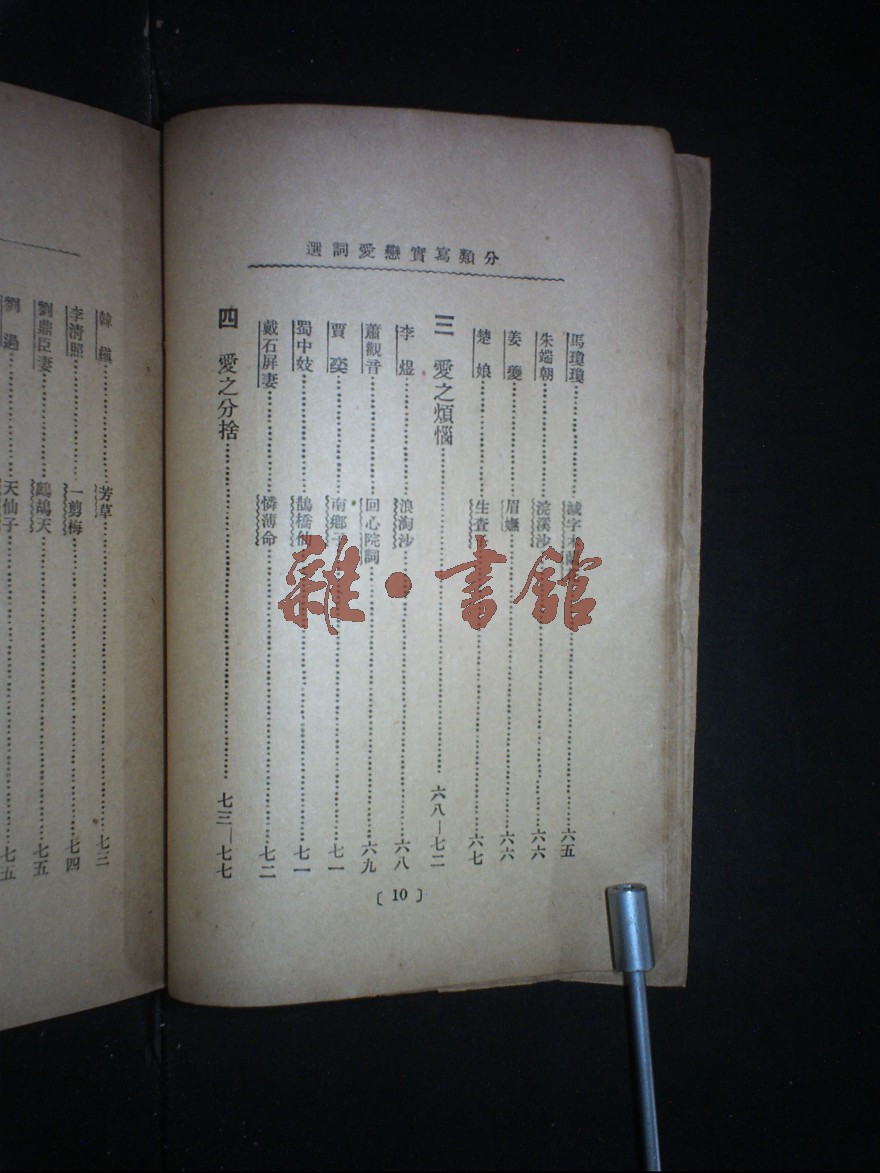 分類寫實戀愛詞選
馬瓊瓊……減字木蘭……六五
朱端朝……浣溪沙……六六
姜夔……眉嫵……六六
楚娘……生查子……六七
三 愛之煩惱……六八—七二
李煜……浪淘沙……六八
蕭觀音……回心院詞……六九
賈奕……南鄉子……七一
蜀中妓……鵲橋仙……七一
戴石屏妻……憐薄命……七二
四 愛之分捨……七三—七七
〔10〕
韓縝……芳草……七三
李清照……一剪梅……七四
劉鼎臣妻……鷓鴣天……七五
劉過……天仙子……七五
雜·書館